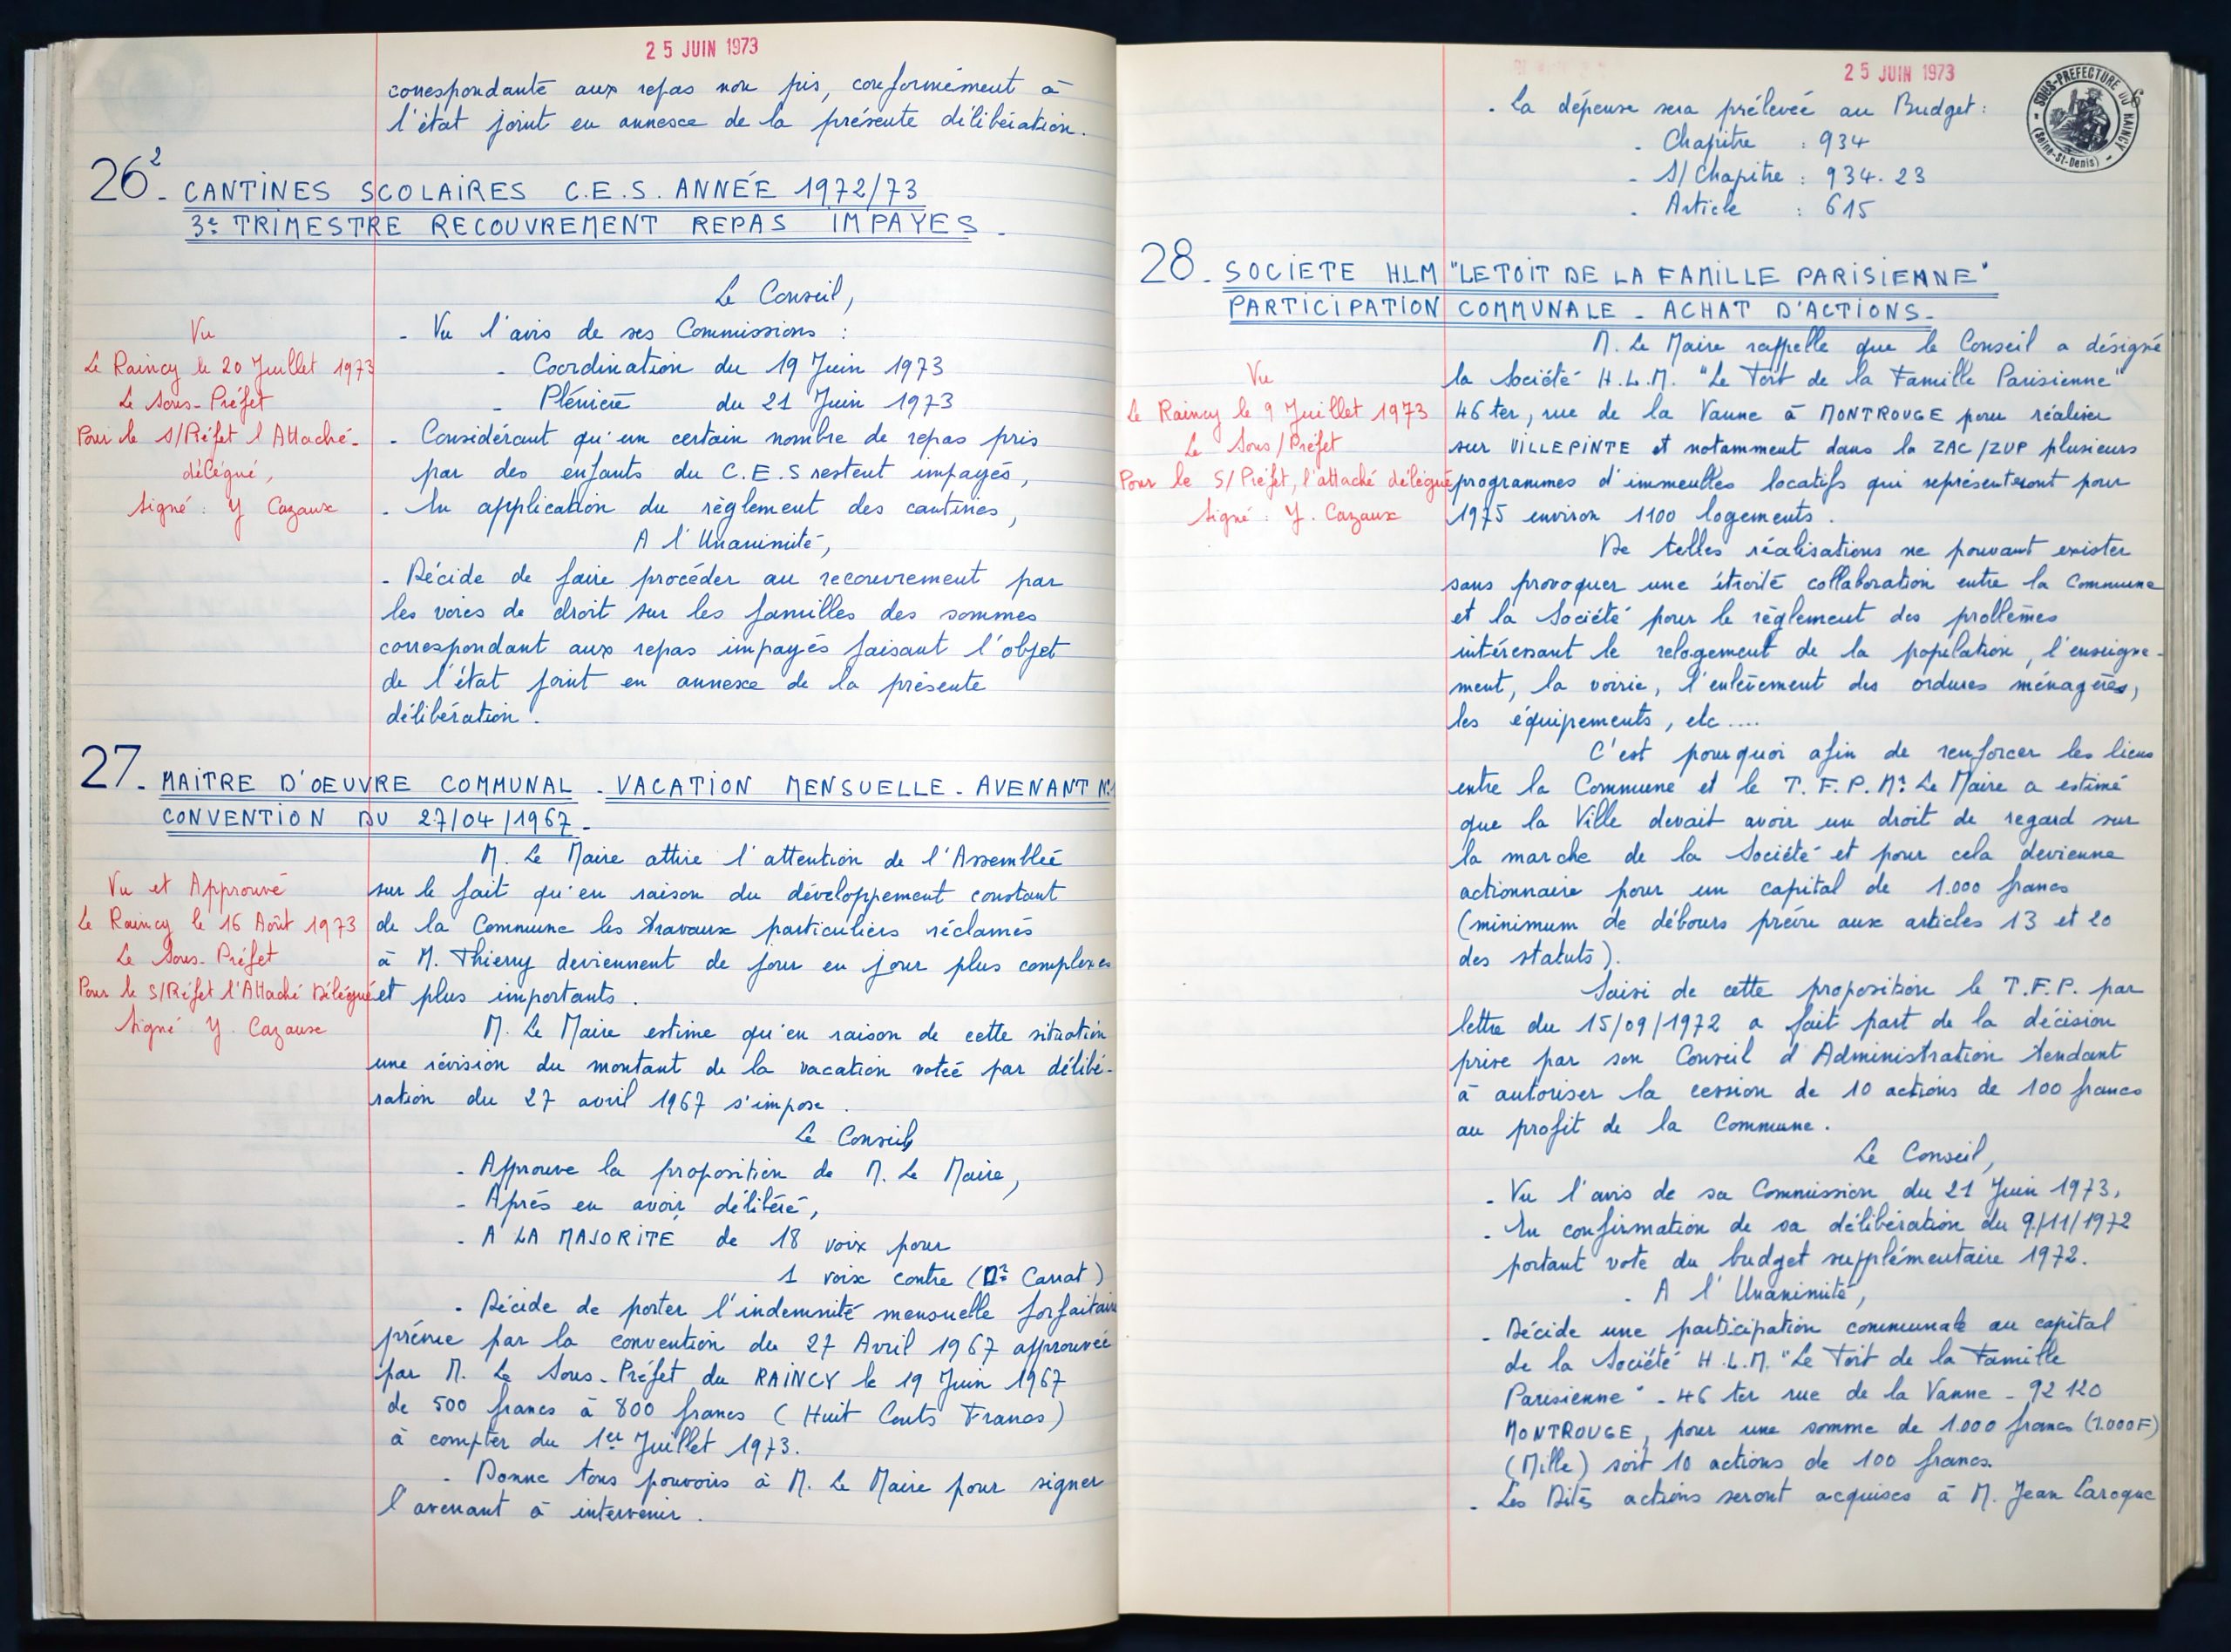 25 JUIN 1973
correspondante aux repas non pris, conformément à
l'état joint en annexe de la présente délibération.
26² - CANTINES SCOLAIRES C.E.S. ANNÉE 1972/73
3e TRIMESTRE RECOUVREMENT REPAS IMPAYES -
Le Conseil,
- Vu l'avis de ses Commissions :
- Coordination du 19 Juin 1973
- Plénière du 21 Juin 1973
- Considérant qu'un certain nombre de repas pris
par des enfants du C.E.S restent impayés,
- En application du règlement des cantines,
A l'Unanimité,
- Décide de faire procéder au recouvrement par
les voies de droit sur les familles des sommes
correspondant aux repas impayés faisant l'objet
de l'état joint en annexe de la présente
délibération.
Vu
Le Raincy le 20 Juillet 1973
Le Sous-Préfet
Pour le S/Préfet l'Attaché-
délégué,
Signé : Y Cazaux
27 - MAITRE D'OEUVRE COMMUNAL - VACATION MENSUELLE - AVENANT N°1
CONVENTION DU 27/04/1967 -
M. Le Maire attire l'attention de l'Assemblée
sur le fait qu'en raison du développement constant
de la Commune les travaux particuliers réclamés
à M. Thierry deviennent de jour en jour plus complexes
et plus importants.
M. Le Maire estime qu'en raison de cette situation
une révision du montant de la vacation votée par délibé-
ration du 27 avril 1967 s'impose.
Le Conseil,
- Approuve la proposition de M. Le Maire,
- Après en avoir délibéré,
- A LA MAJORITÉ de 18 voix pour
1 voix contre (Carrat)
- Décide de porter l'indemnité mensuelle forfaitaire
prévue par la convention du 27 Avril 1967 approuvée
par M. Le Sous-Préfet du RAINCY le 19 Juin 1967
de 500 francs à 800 francs (Huit Cents Francs)
à compter du 1er Juillet 1973.
- Donne tous pouvoirs à M. Le Maire pour signer
l'avenant à intervenir.
Vu et Approuvé
Le Raincy le 16 Août 1973
Le Sous-Préfet
Pour le S/Préfet l'Attaché Délégué
Signé Y. Cazaux
25 JUIN 1973
SOUS-PREFECTURE DU RAINCY
(Seine-St-Denis)
- La dépense sera prélevée au Budget :
- Chapitre : 934
- S/Chapitre : 934.23
- Article : 615
28 - SOCIETE HLM "LE TOIT DE LA FAMILLE PARISIENNE"
PARTICIPATION COMMUNALE - ACHAT D'ACTIONS -
M. Le Maire rappelle que le Conseil a désigné
la Société H.L.M. "Le Toit de la Famille Parisienne"
46 ter, rue de la Vanne à MONTROUGE pour réaliser
sur VILLEPINTE et notamment dans la ZAC/ZUP plusieurs
programmes d'immeubles locatifs qui représenteront pour
1975 environ 1100 logements.
De telles réalisations ne pouvant exister
sans provoquer une étroite collaboration entre la Commune
et la Société pour le règlement des problèmes
intéressant le relogement de la population, l'enseigne-
ment, la voirie, l'enlèvement des ordures ménagères,
les équipements, etc....
C'est pourquoi afin de renforcer les liens
entre la Commune et le T.F.P. Mr Le Maire a estimé
que la Ville devait avoir un droit de regard sur
la marche de la Société et pour cela devienne
actionnaire pour un capital de 1.000 francs
(minimum de débours prévu aux articles 13 et 20
des statuts).
Saisi de cette proposition le T.F.P. par
lettre du 15/09/1972 a fait part de la décision
prise par son Conseil d'Administration tendant
à autoriser la cession de 10 actions de 100 francs
au profit de la Commune.
Le Conseil,
- Vu l'avis de sa Commission du 21 Juin 1973,
- En confirmation de sa délibération du 9/11/1972
portant vote du budget supplémentaire 1972.
- A l'Unanimité,
- Décide une participation communale au capital
de la Société H.L.M. "Le Toit de la Famille
Parisienne" - 46 ter rue de la Vanne - 92 120
MONTROUGE, pour une somme de 1.000 francs (1.000F)
(Mille) soit 10 actions de 100 francs.
- Les Dites actions seront acquises à M. Jean Laroque
Vu
Le Raincy le 9 Juillet 1973
Le Sous/Préfet
Pour le S/Préfet, l'attaché délégué
Signé : Y. Cazaux